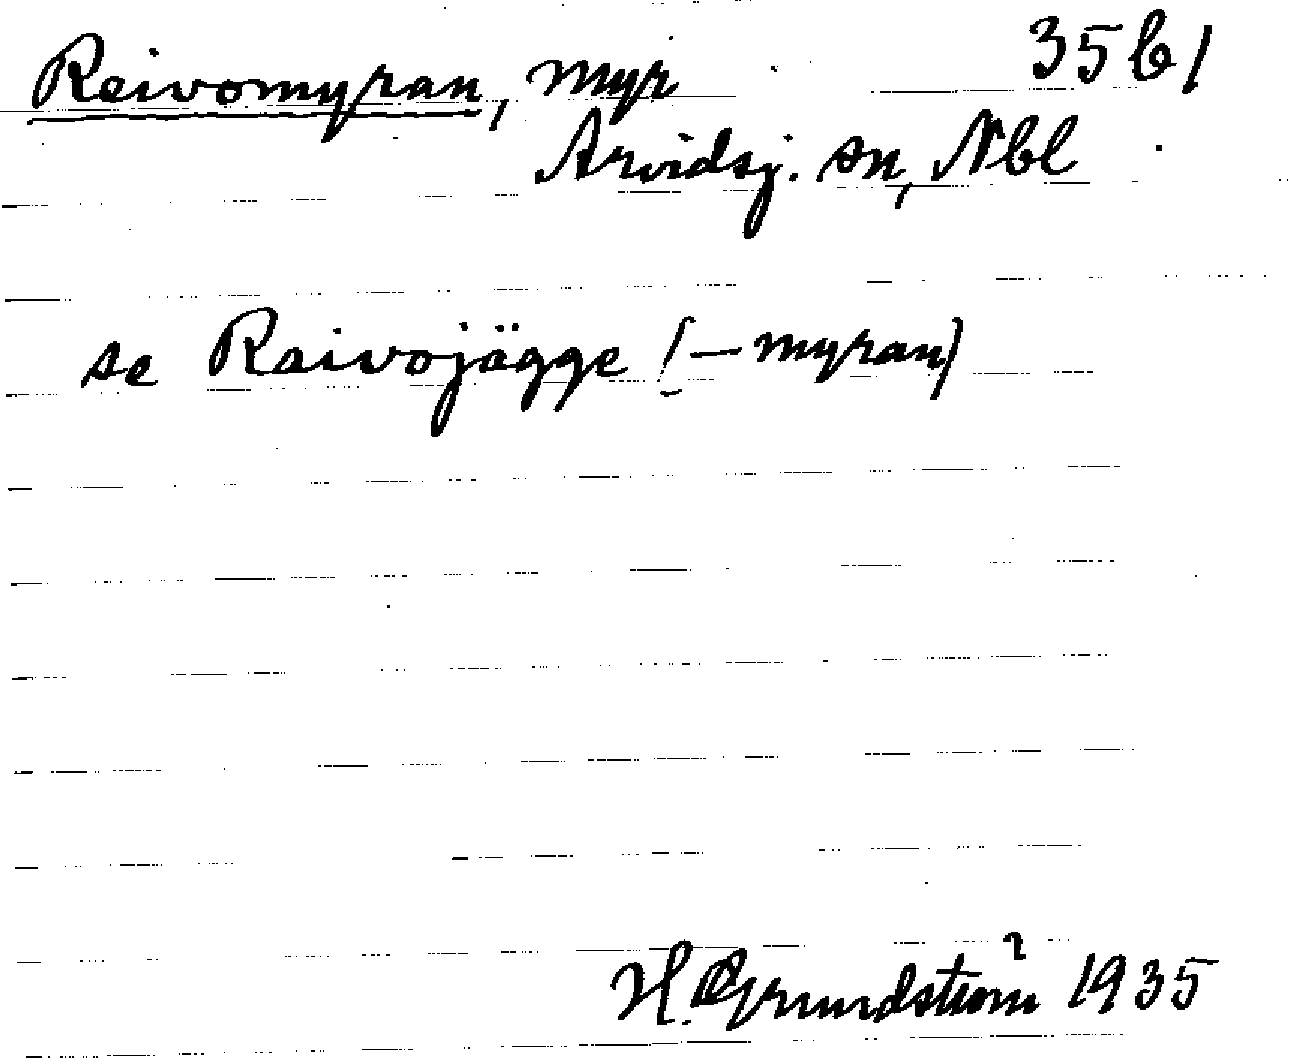 Reivomyran, myr 35 b 1
Arvidsj. sn, Nbl
se Raivojägge (-myran)
H. Grundström 1935